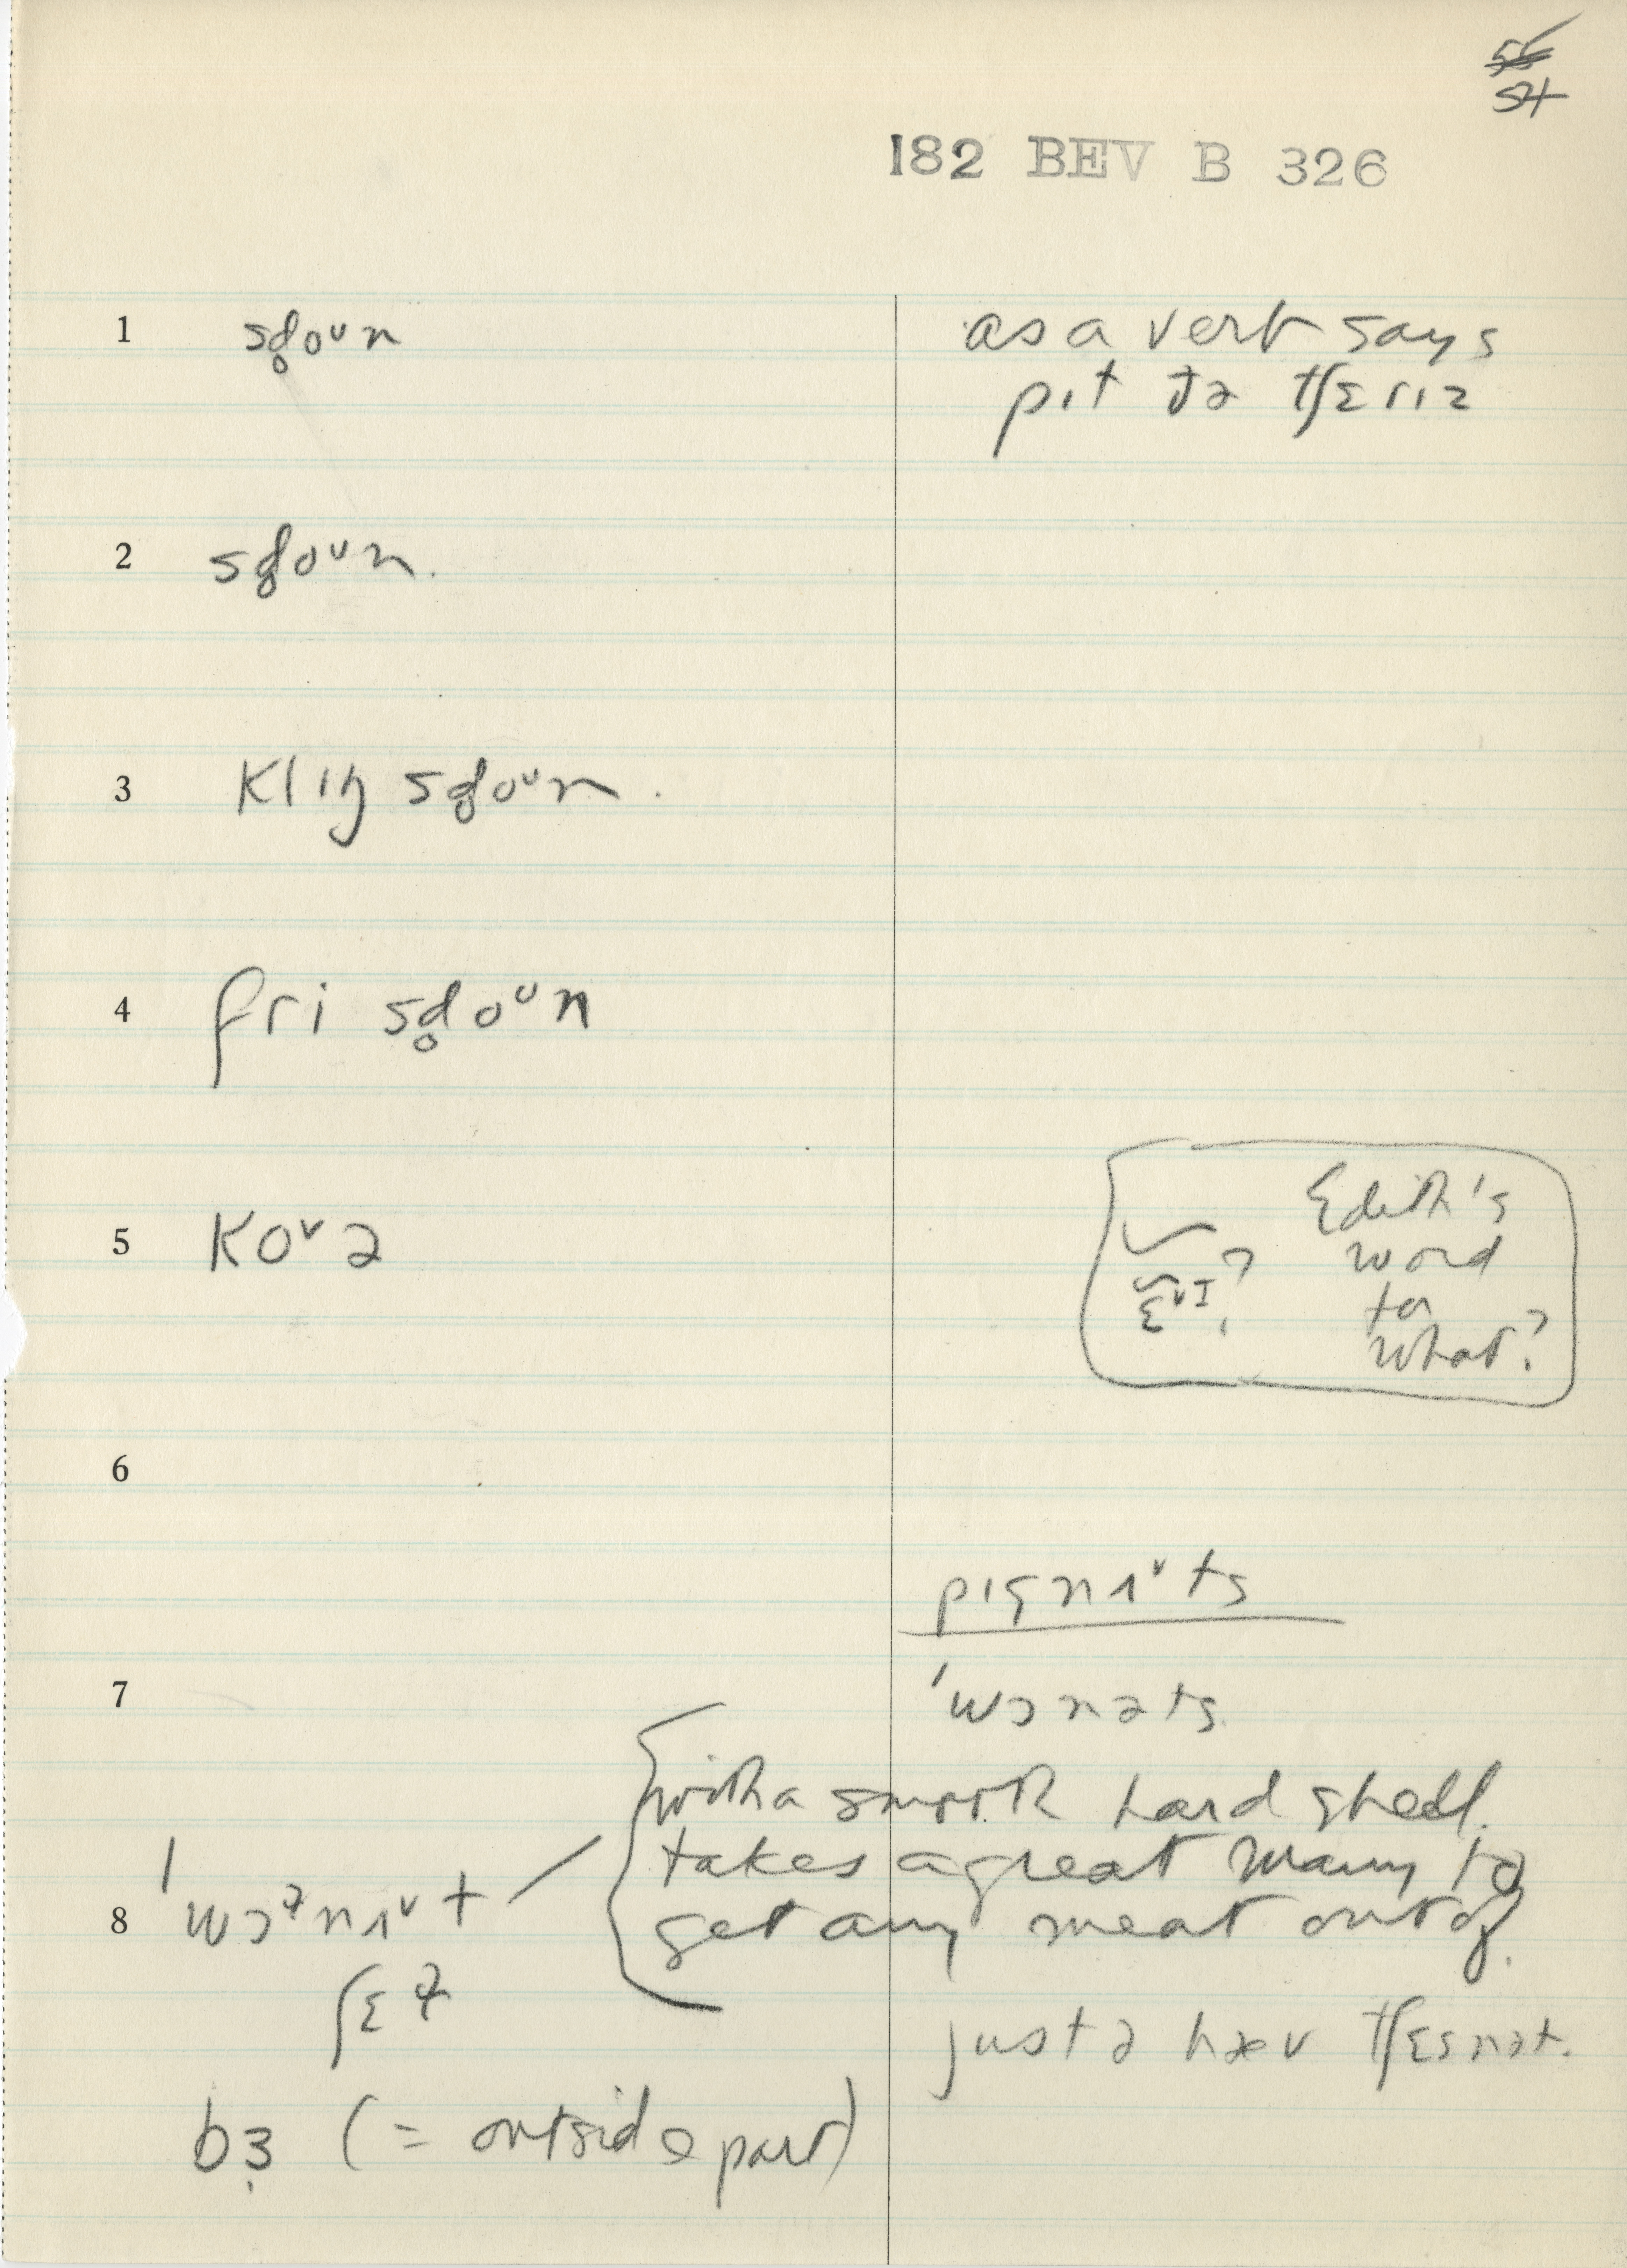 54
182 BEV B 326
1 sd̥oᵘn
as a verb says
pɪt ðə tʃɛrɪz
2 sd̥oᵘn.
3 klɪŋ sd̥oᵘn.
4 fri sd̥oᵘn
5 koᵛə
Edith's
word
for
what?
6
pɪgnʌᵛts
7
ˈwɔnəts
with a smooth hard shell.
takes a great many to
8 ˈwɔᵊnʌᵛt
get any meat out of.
ʃɛ
just ə hæv tʃɛsnət.
bɜ (= outside part)